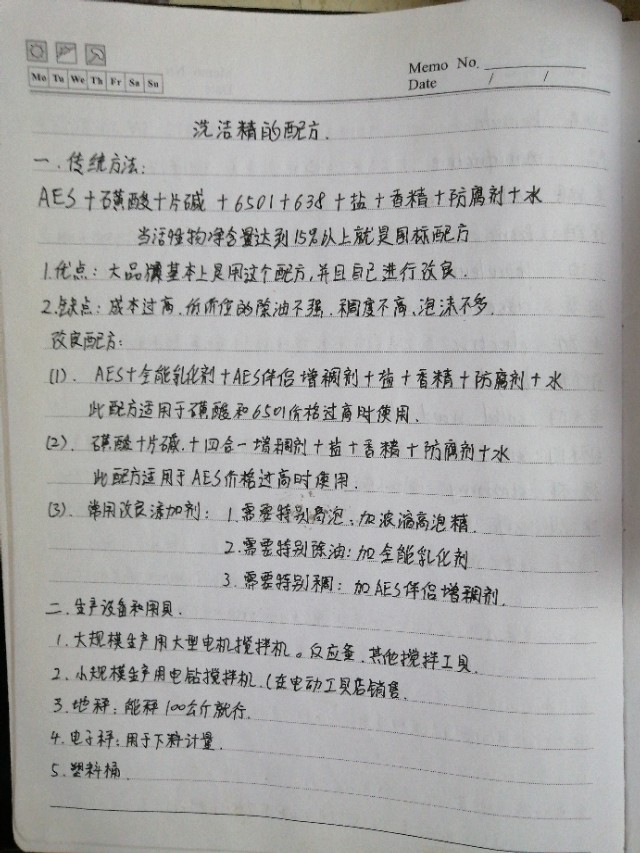 Mo Tu We Th Fr Sa Su
Memo No.
Date / /
洗洁精的配方.
一.传统方法:
AES+磺酸+片碱+6501+638+盐+香精+防腐剂+水
当活性物净含量达到15%以上就是国标配方
1.优点:大品牌基本上是用这个配方,并且自己进行改良.
2.缺点:成本过高.低价位的除油不强.稠度不高、泡沫不多
改良配方:
(1). AES+全能乳化剂+AES伴侣增稠剂+盐+香精+防腐剂+水
此配方适用于磺酸和6501价格过高时使用.
(2). 磺酸+片碱.+四合一增稠剂+盐+香精+防腐剂+水
此配方适用于AES价格过高时使用.
(3). 常用改良添加剂: 1.需要特别高泡:加浓缩高泡精.
2.需要特别除油:加全能乳化剂
3.需要特别稠:加AES伴侣增稠剂.
二.生产设备和用具.
1.大规模生产用大型电机搅拌机。反应釜.其他搅拌工具.
2.小规模生产用电钻搅拌机.(在电动工具店销售.
3.地秤:能秤100公斤就行.
4.电子秤:用于下料计量.
5.塑料桶.